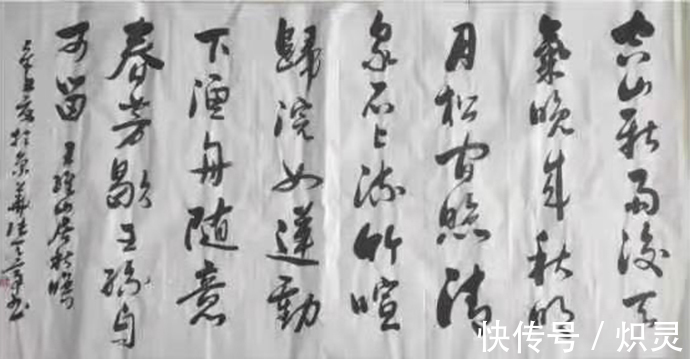 空山新雨後天
氣晚来秋明
月松间照清
泉石上流竹喧
歸浣女蓮動
下漁舟随意
春芳歇王孫自
可留 王维山居秋暝
於京華書
快传号 / 炽灵